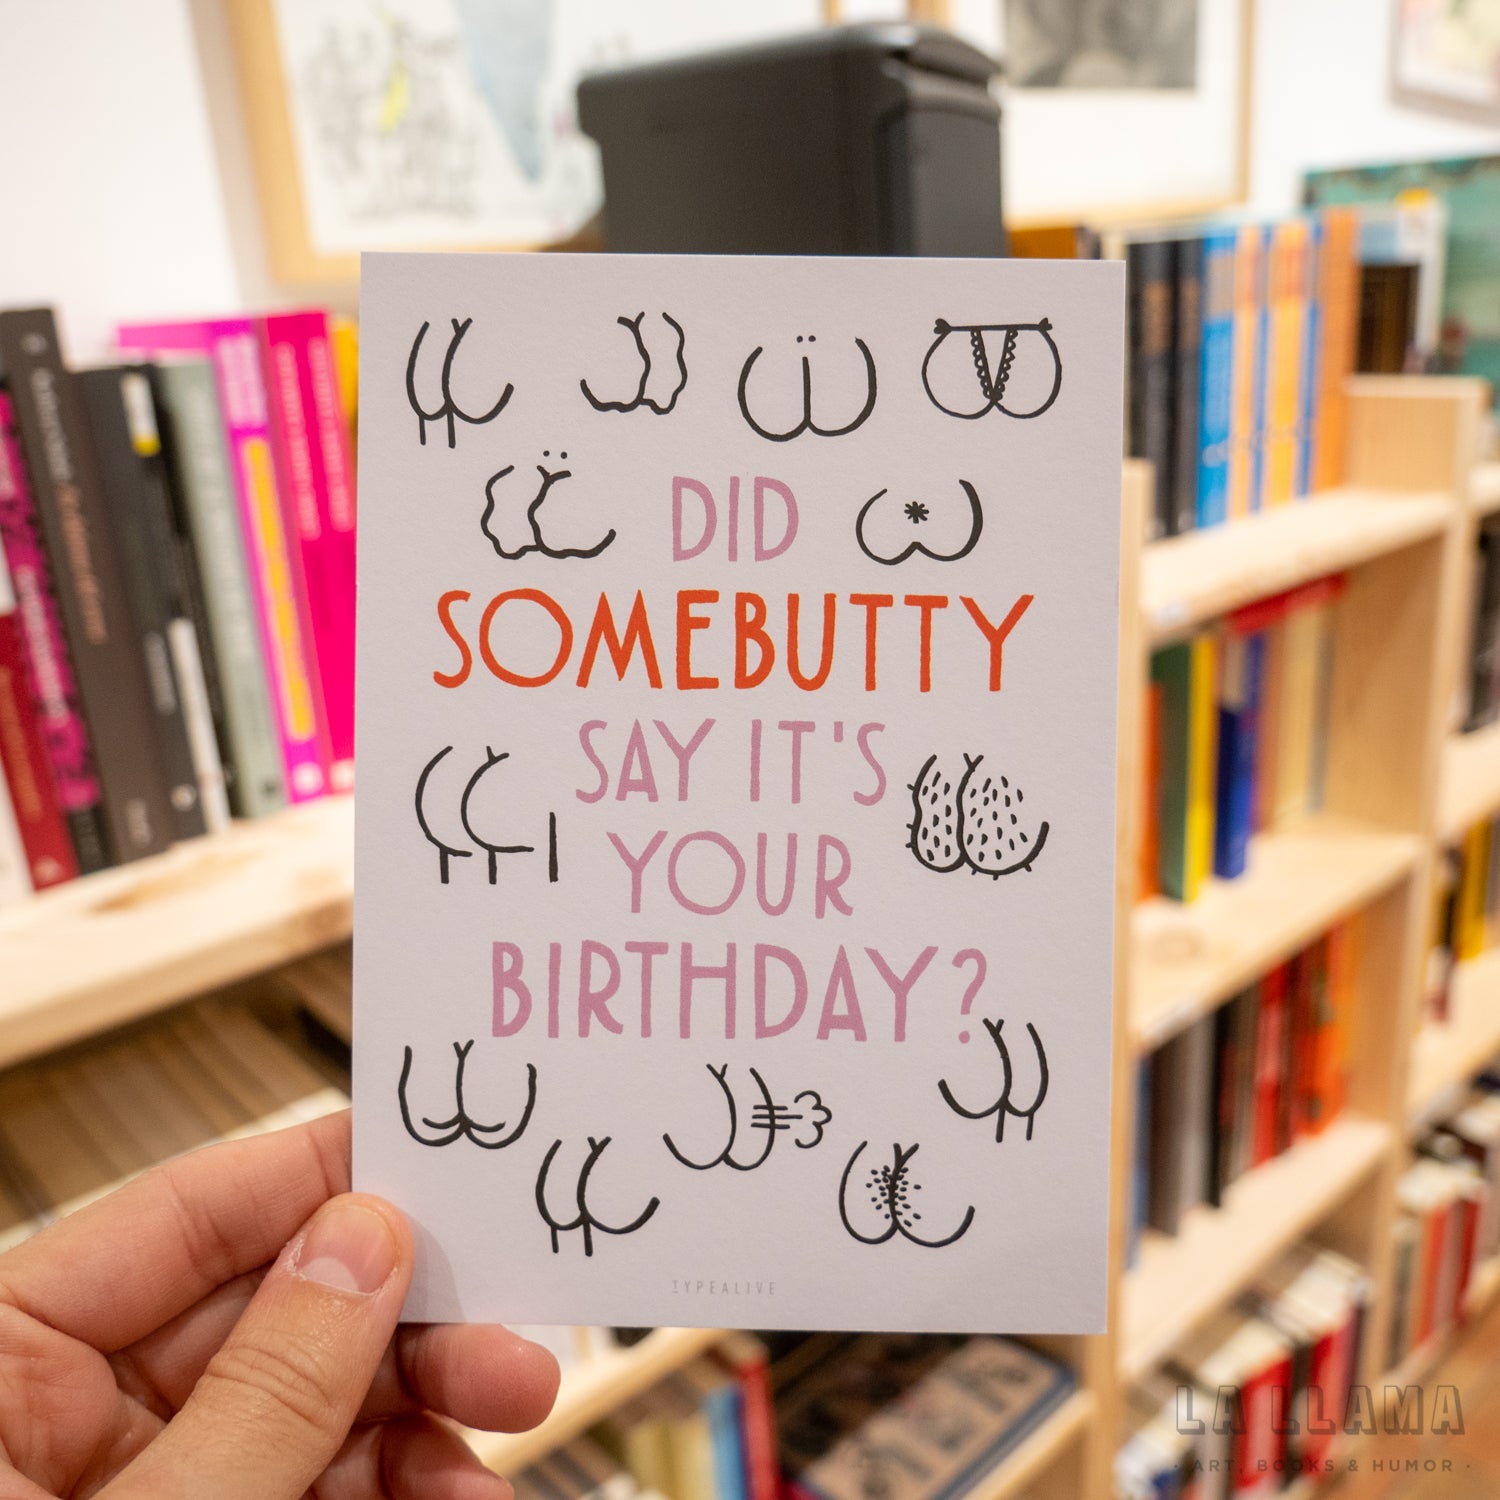 DID
SOMEBUTTY
SAY IT'S
YOUR
BIRTHDAY?
TYPEALIVE
LA LLAMA
· ART, BOOKS & HUMOR ·